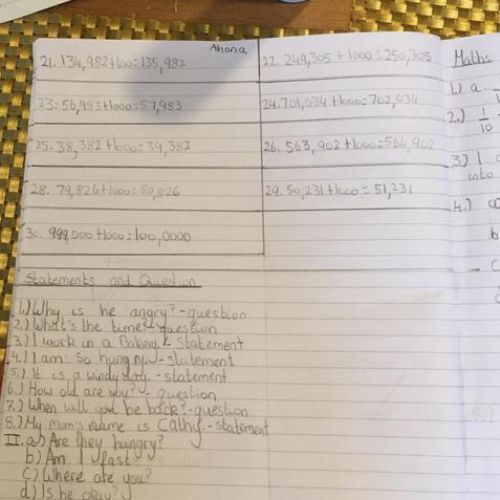 Ahana
21. 134,982+1000=135,982
22. 249,305 + 1000 = 250,305
23. 56,983+1000=57,983
24. 701,034+1000=702,034
25. 38,382 +1000=39,382
26. 563,902 +1000=564,902
28. 79,826+1000=80,826
29. 50,231+1000=51,231
30. 999,000+1000=100,0000
Statements and Question
1.) Why is he angry? - question
2.) What's the time - question
3.) I work in a Bakery. - Statement
4.) I am so hungry. - Statement
5.) It is a windy day. - statement
6.) How old are you? - question
7.) When will you be back? - question
8.) My mum's name is Cathy. - statement
II. a) Are they hungry?
b) Am I fast
c) Where are you?
d) Is he okay?
Maths
1.) a.
2.) 1/10
3.) I
into
4.) a
b
c